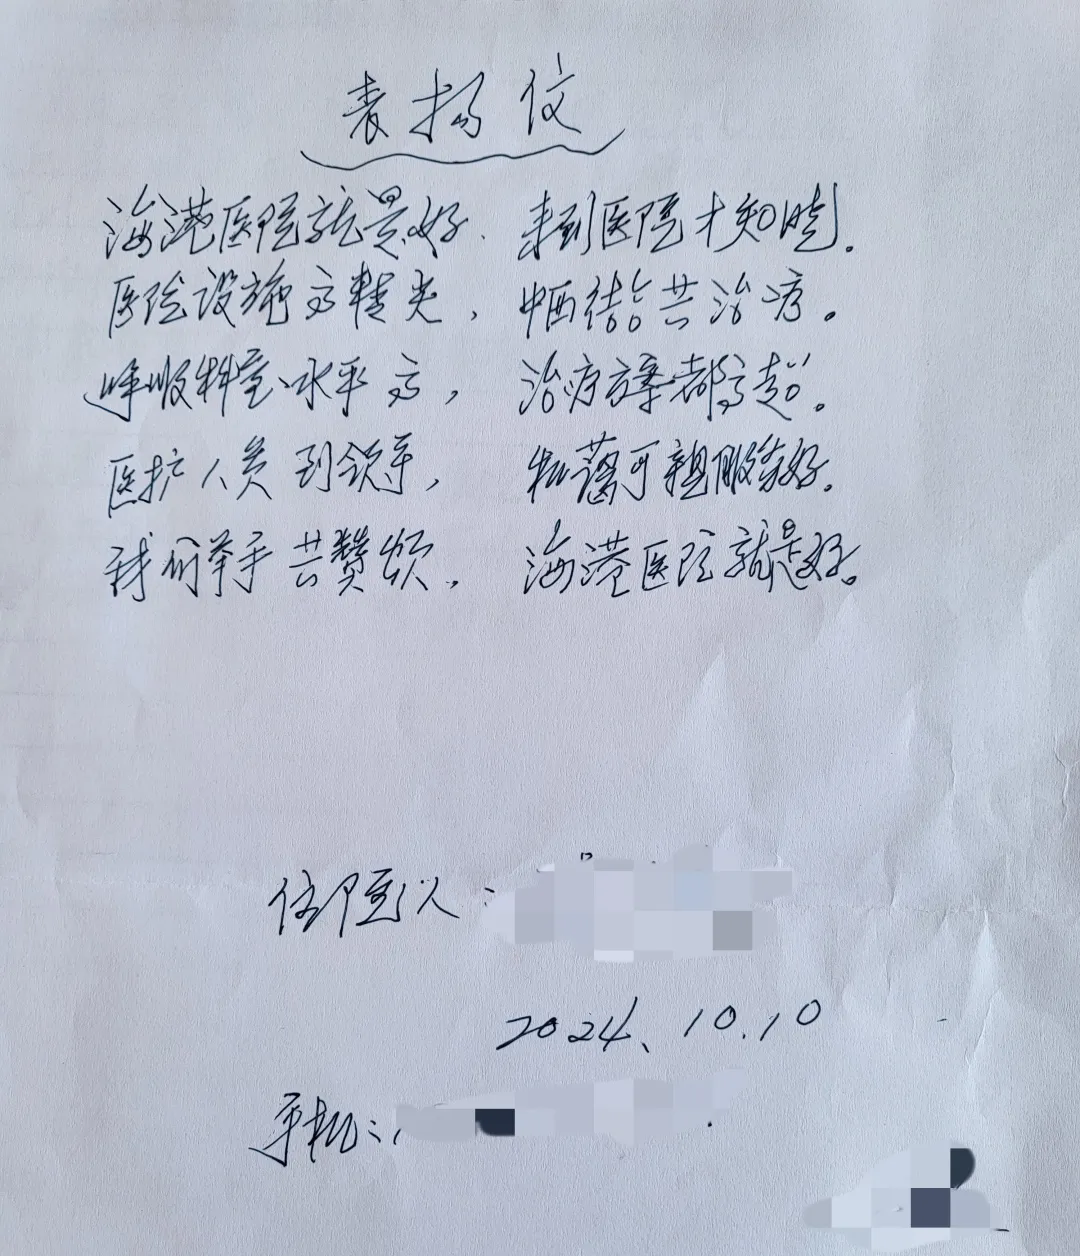 表扬信
海港医院就是好. 来到医院才知晓.
医院设施高精尖, 中西结合共治疗.
呼吸科室水平高, 治疗方案都高超.
医护人员到领导, 和蔼可亲服务好.
我们举手共赞颂, 海港医院就是好.
住院人:
2024、10.10
手机: